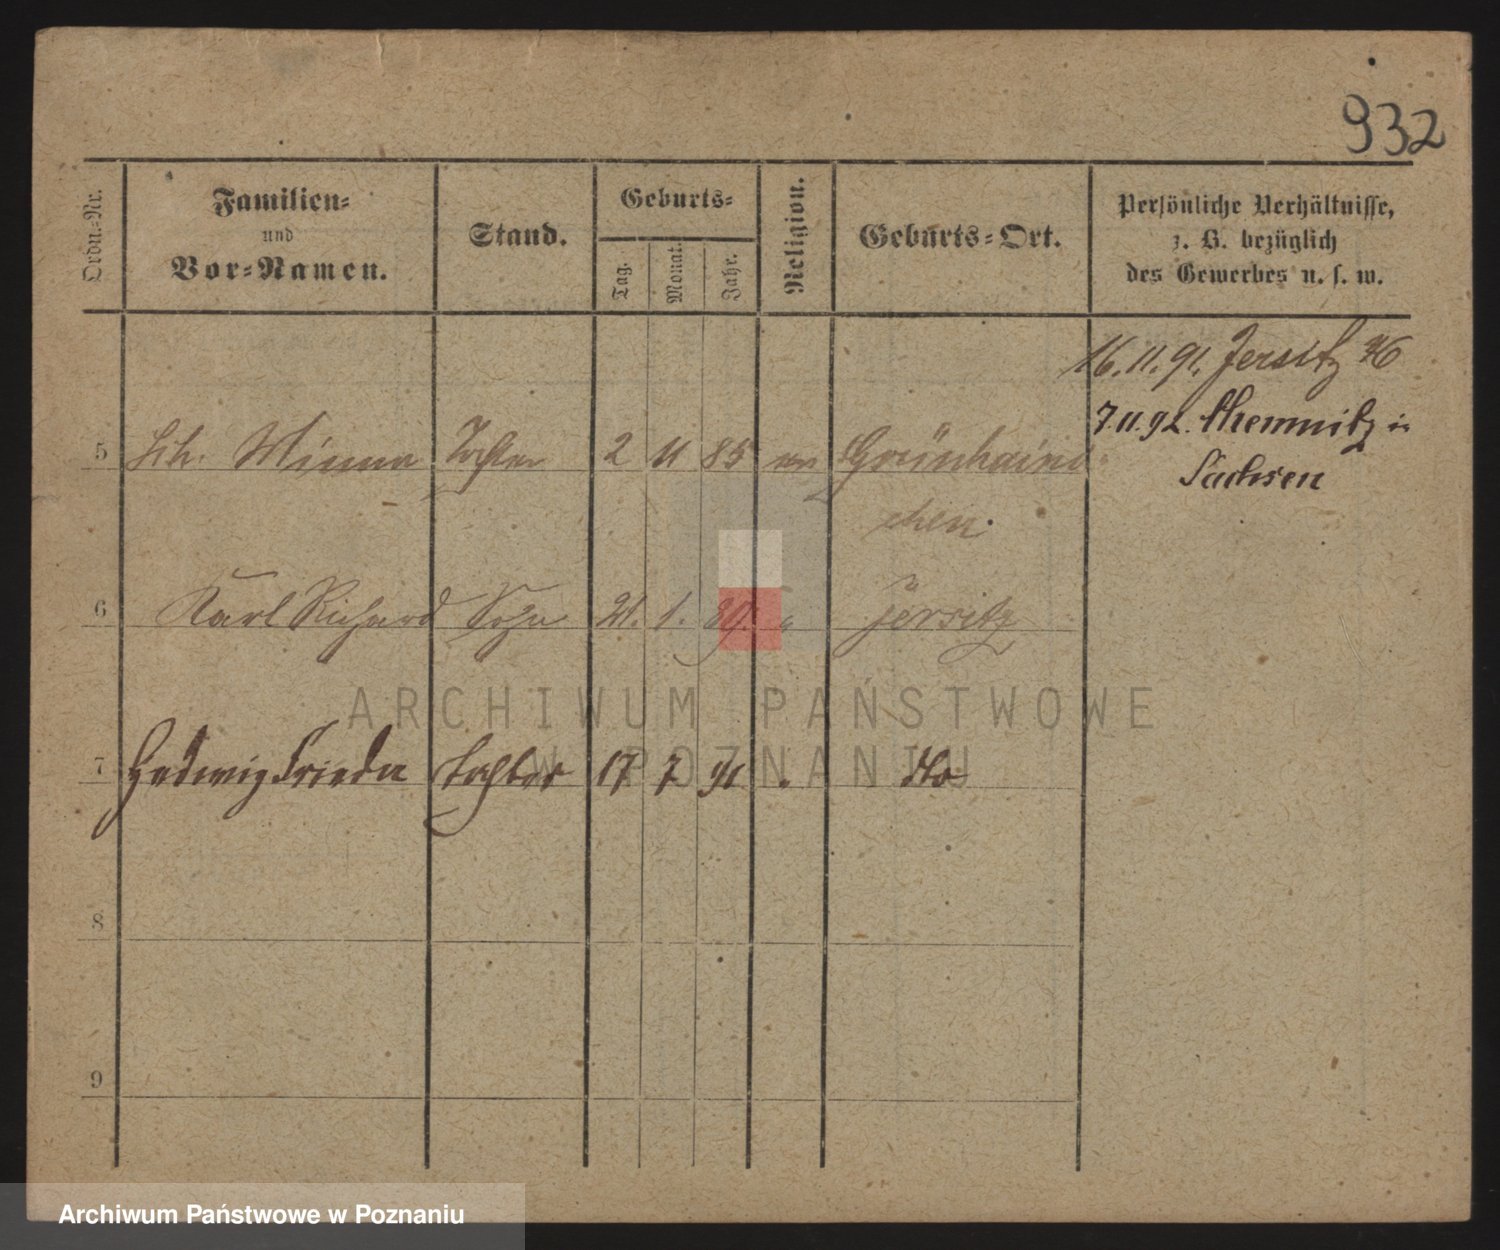 932
Ordn.-Nr.
Familien-
und
Vor-Namen.
Stand.
Geburts-
Tag.
Monat.
Jahr.
Religion.
Geburts-Ort.
Persönliche Verhältnisse,
z. B. bezüglich
des Gewerbes u. s. w.
16.11.91. Jersitz 46
7.11.92. Chemnitz in
Sachsen
5 Minna Tochter 2 11 85 ev Grünhaini
chen.
6 Karl Richard Sohn 21. 1. 89. " Jersitz
ARCHIWUM PAŃSTWOWE
W POZNANIU
7 Hedwig Frieda Tochter 17 7 91 " do
8
9
Archiwum Państwowe w Poznaniu